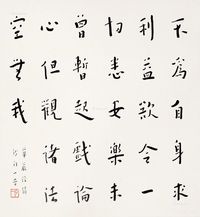 不為自身求
利益欲令一
切悉安樂未
曾暫起戲論
心但觀諸法
空無我
華嚴經偈